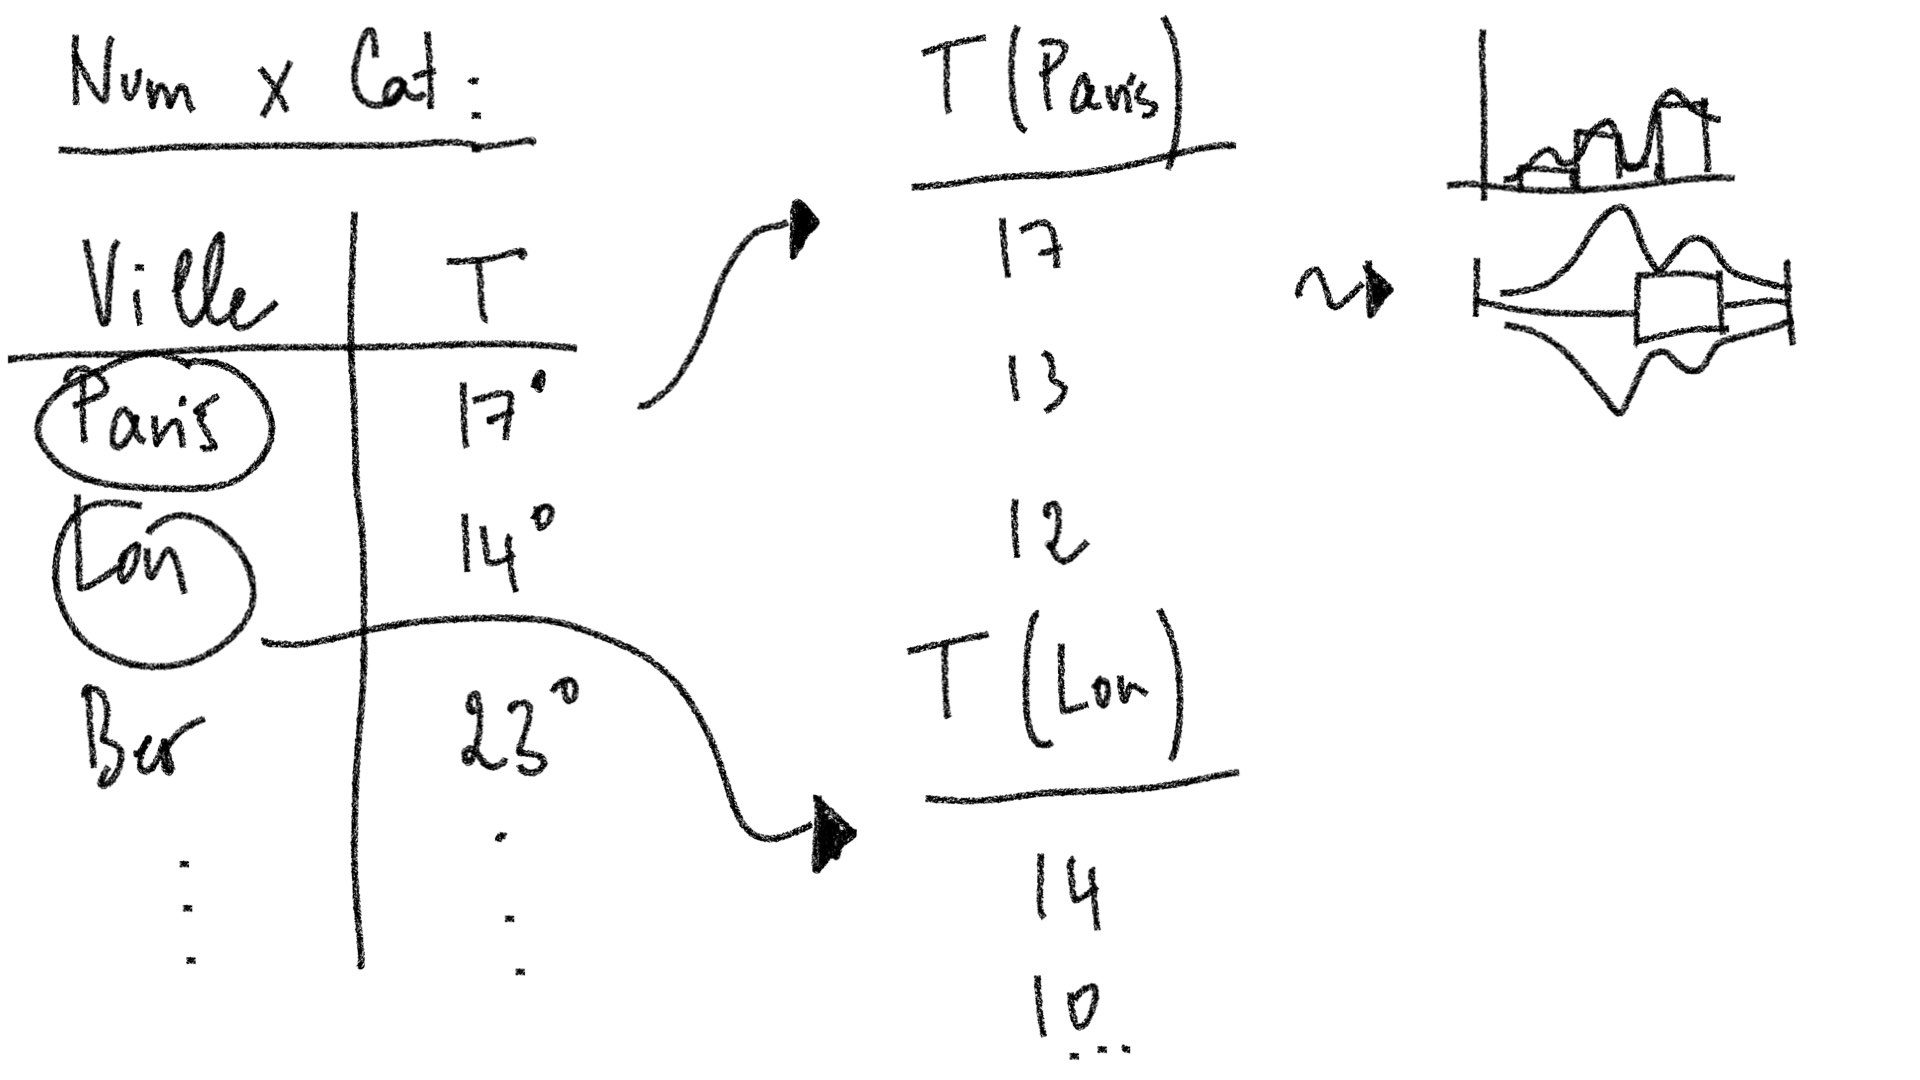 Num x Cat :
Ville T
Paris 17°
Lon 14°
Ber 23°
T (Paris)
17
13
12
T (Lon)
14
10
...